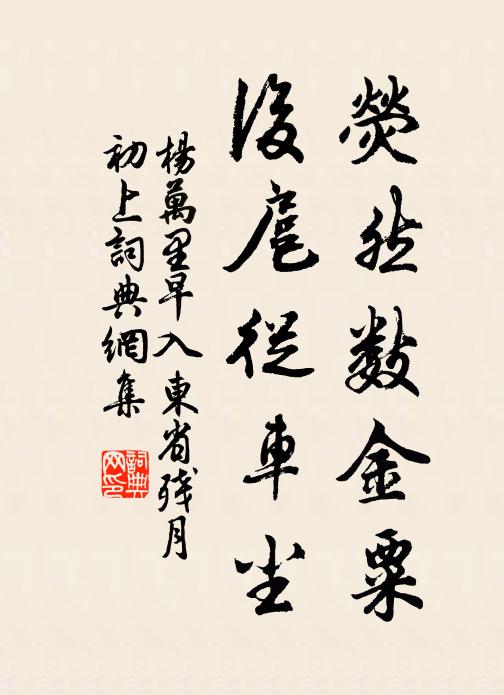 熒然數金粟
後扈從車尘
楊萬里早入東省殘月
初上詞典網集
詞典
网印